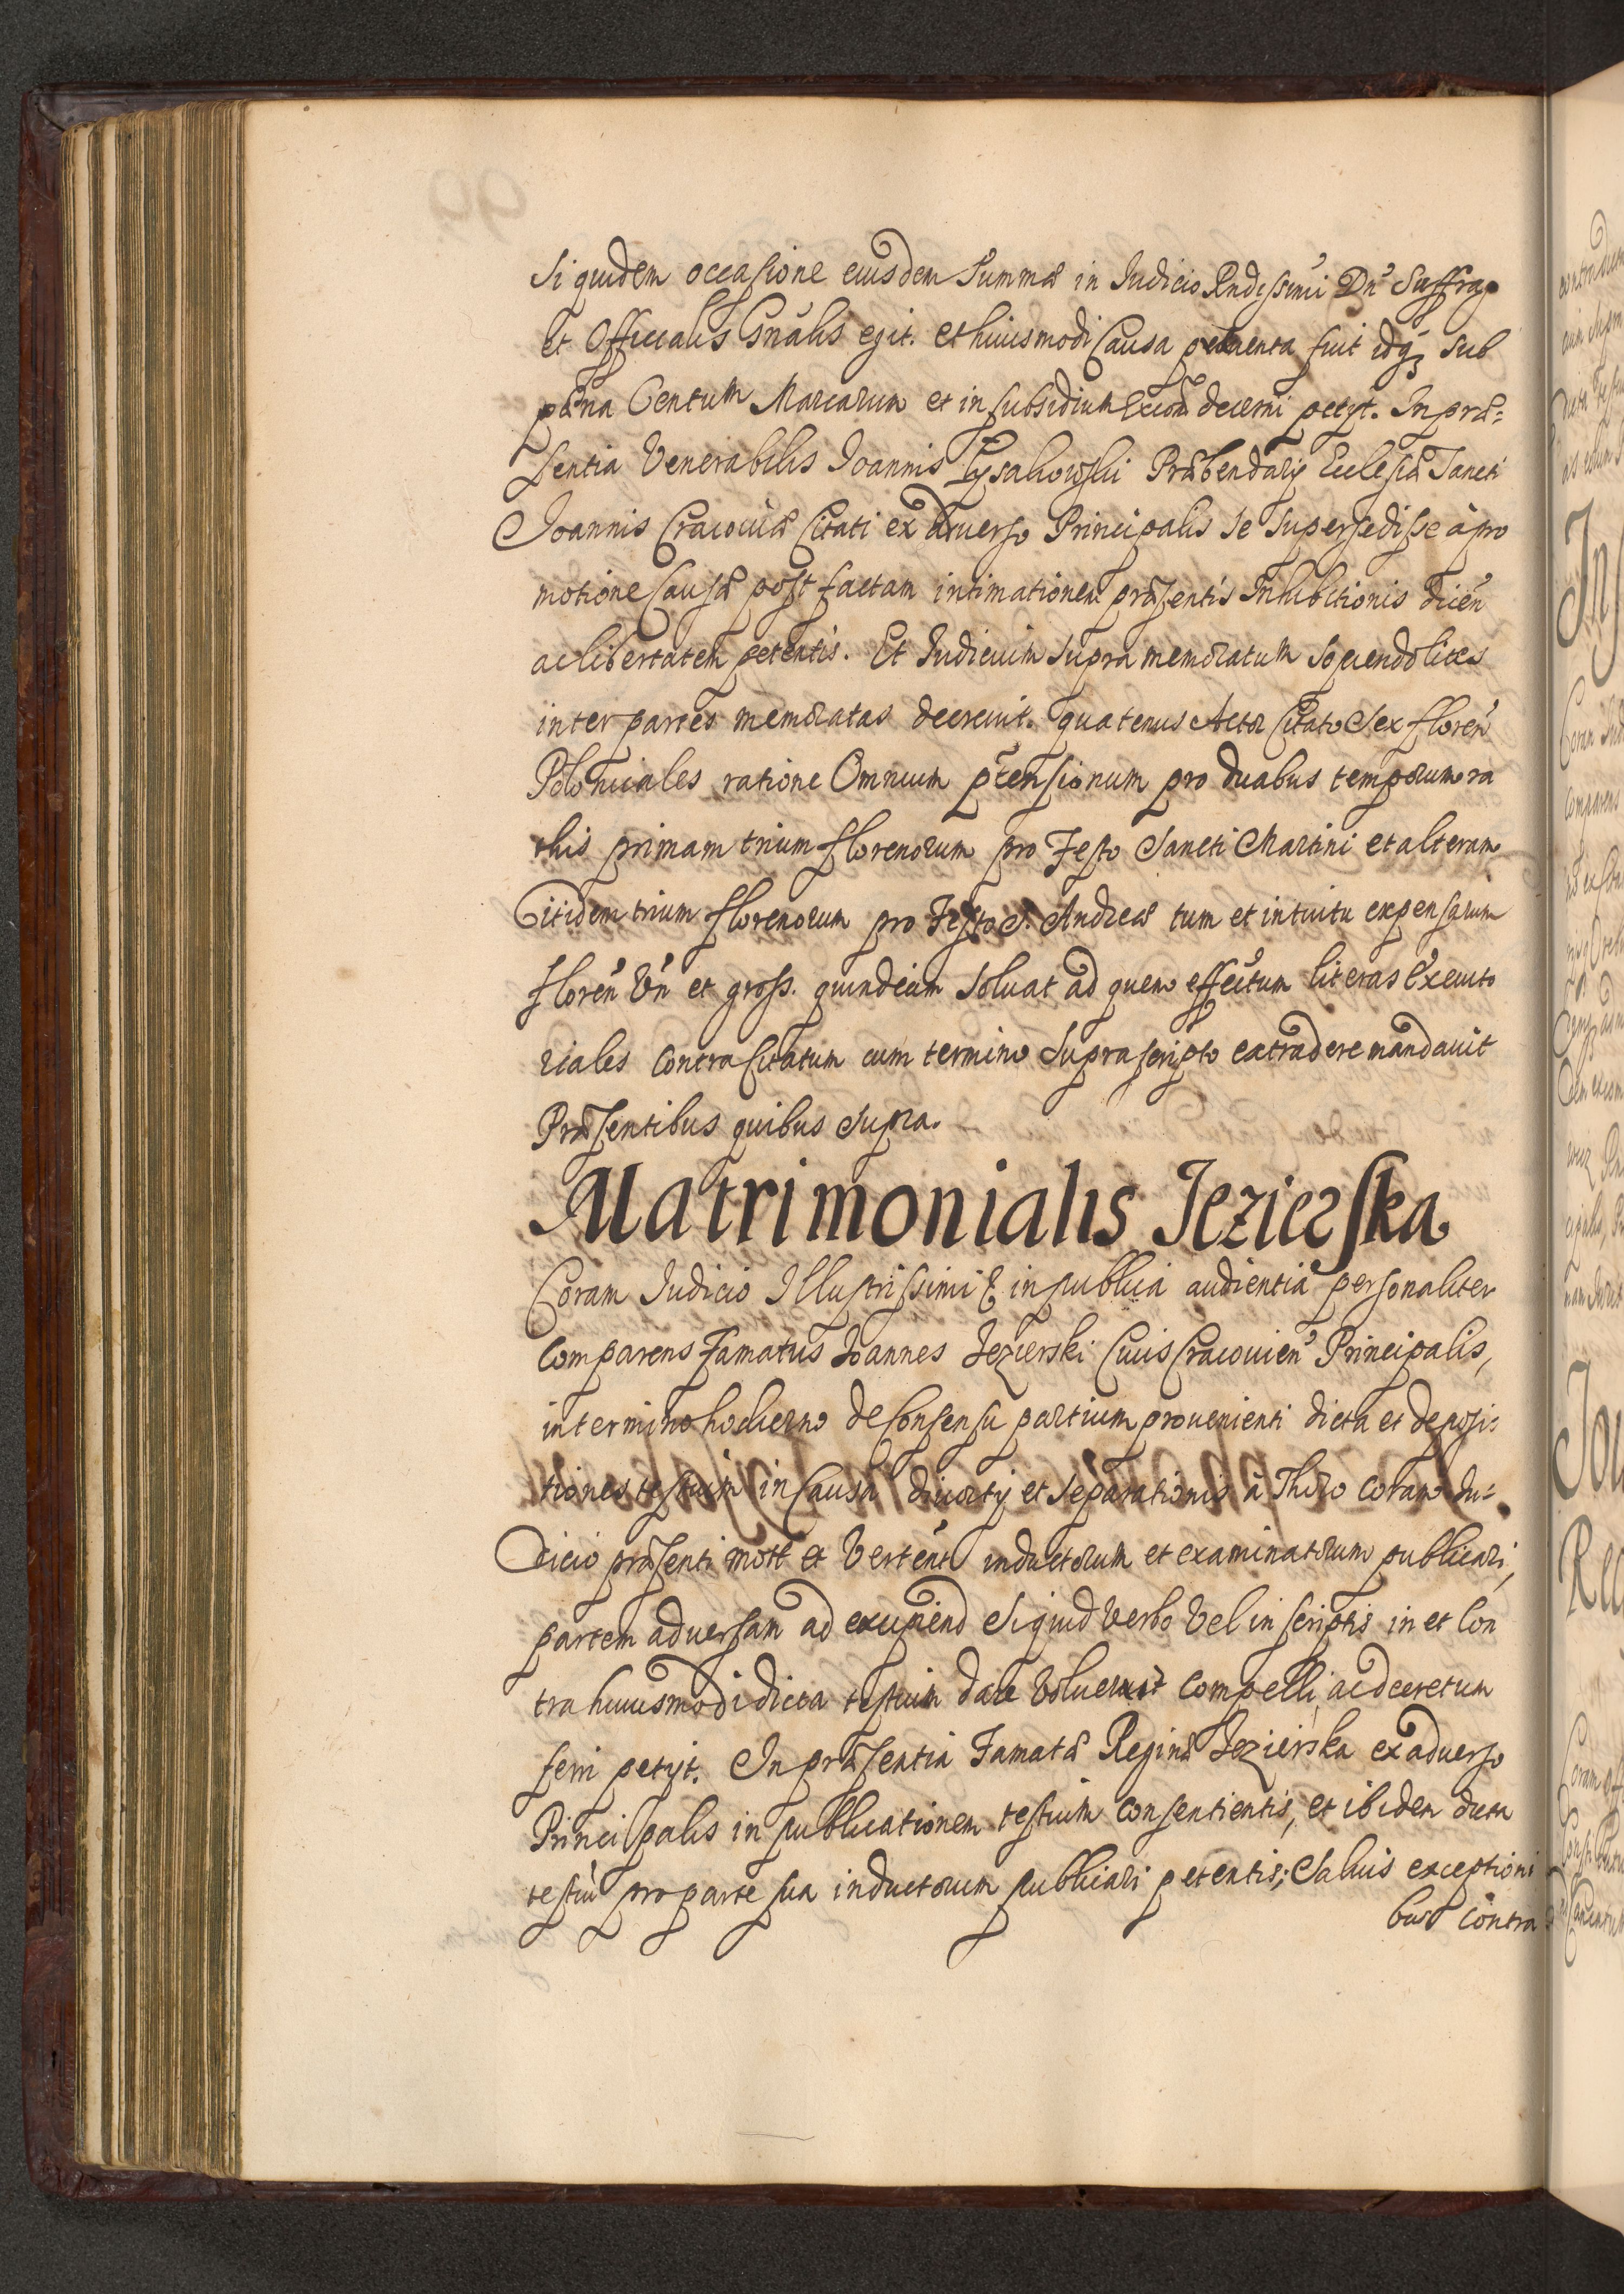 Si quidem occasione eiusdem Summæ in Iudicio Rndissimi Dni Suffrag
et Officialis Gnalis egit. et huiusmodi Causa perempta fuit idq3 sub
pæna Centum Marcarum et in subsidium Excom decerni petyt. In præ=
sentia Venerabilis Ioannis Præbendary Ecclesiæ Sancti
Ioannis Cracoviæ Citati ex adverso Principalis se supersedisse à pro
motione Causæ post factam intimationem præsentis Inhibitionis dicen
ac libertatem petentis. Et Iudicium supra memoratum sopiendo lites
inter partes memoratas decrevit. quatenus Actor Citato Sex floren
Polonicales ratione Omnium ptensionum pro duabus temporum ra
this primam trium florenorum pro Festo Sancti Martini et alteram
itidem trium florenorum pro Festo S. Andreæ tum et intuitu expensarum
floren Vn et gross. quindecim soluat ad quem effectum literas Executo
riales contra Citatum cum termino supra scripto extradere mandavit
Præsentibus quibus supra.
Matrimonialis Jezierska
Coram Iudicio Illustrissimi & in publica audientia personaliter
comparens Famatus Ioannes Jezierski Ciuis Cracouien Principalis,
in termino hodierno de Consensu partium prouenienti dicta et deposi=
tiones testium in Causa diuorty et separationis à Thoro coram Iu=
dicio præsenti mott et Vertent inductorum et examinatorum publicari,
partem aduersam ad excipiend si quid verbo Vel in scriptis in et Con
tra huiusmodi dicta testium dare Voluerit compelli, ac decretum
ferri petyt. In præsentia Famatæ Reginæ Jezierska ex aduerso
Principalis in publicationem testium consentientis, et ibidem dicta
testiu pro parte sua inductorum publicari petentis; Saluis exceptioni
bus contra